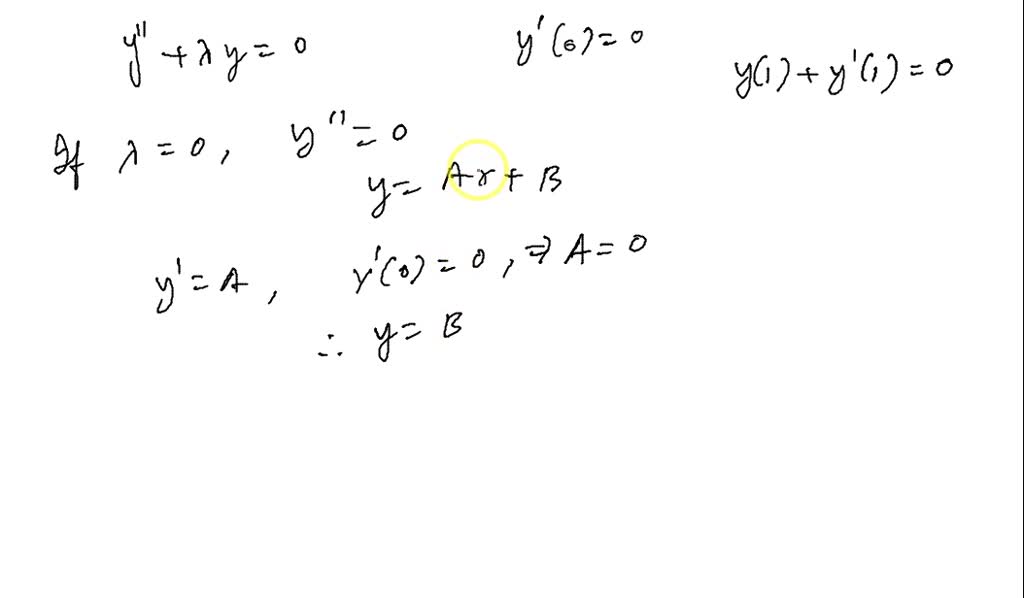 y'' + λy = 0 y'(0) = 0 y(1) + y'(1) = 0
If λ = 0, y'' = 0
y = Ax + B
y' = A, y'(0) = 0, ⇒ A = 0
∴ y = B